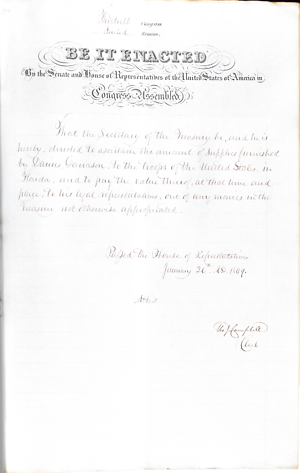 Congress
Session
BE IT ENACTED
By the Senate and House of Representatives of the United States of America in
Congress Assembled,
That the Secretary of the Treasury be, and he is
hereby, directed to ascertain the amount of Supplies furnished
by to the troops of the United States in
Florida, and to pay the value thereof, at that time and
place, to his legal representatives, out of any money in the
Treasury not otherwise appropriated.
Passed the House of Representatives
January 26th AD. 1849.
Attest
Tho J Campbell
Clerk